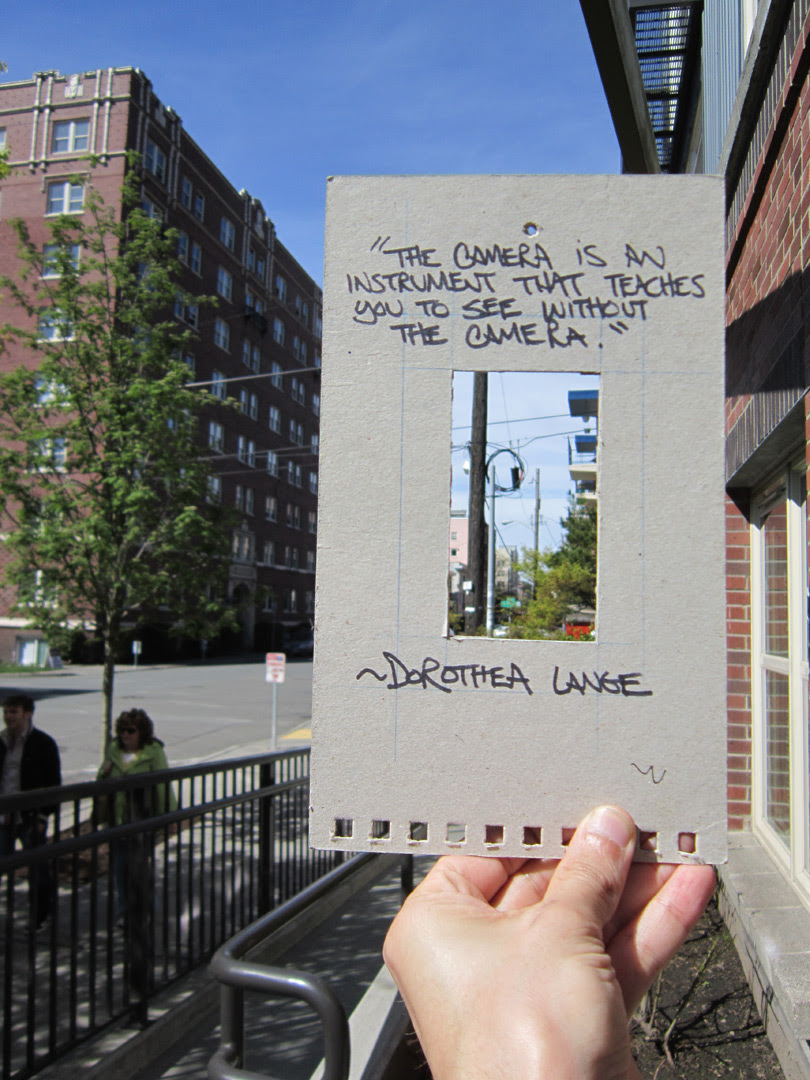 "THE CAMERA IS AN
INSTRUMENT THAT TEACHES
YOU TO SEE WITHOUT
THE CAMERA."
~DOROTHEA LANGE